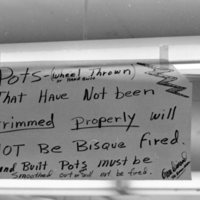 Pots - (Wheel Thrown)
or Hand Built
That Have Not been
trimmed Properly will
NOT Be Bisque fired.
Hand Built Pots must be
Smoothed out or will not be fired.